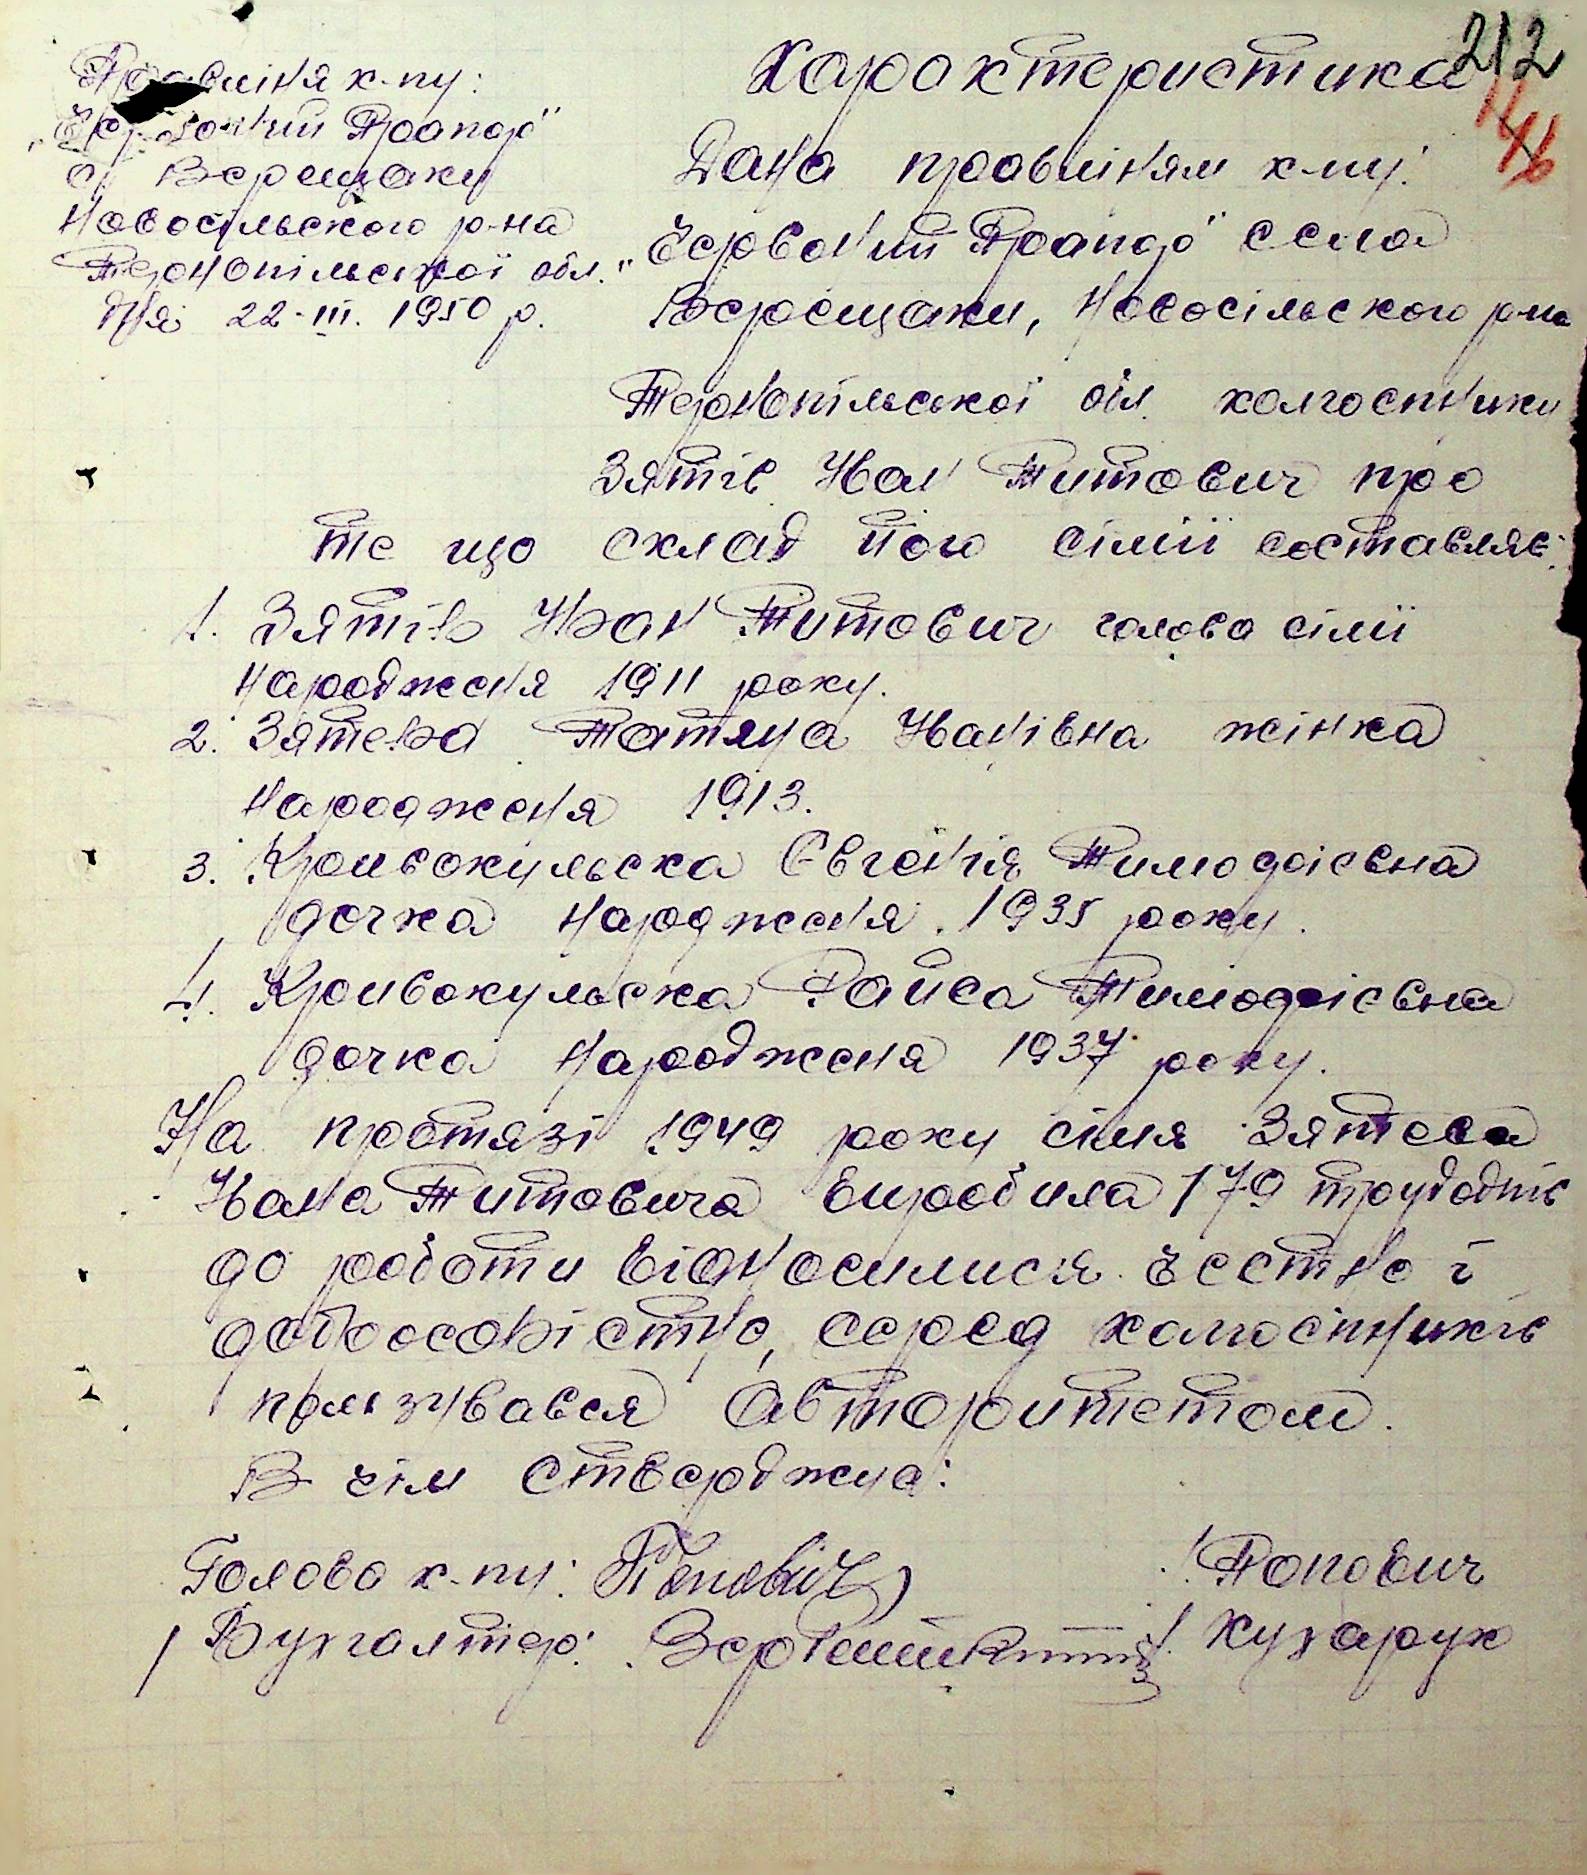 Правліня к-пу:
„Червоний Прапор"
с. Верещаки
Новосільского р-на
Тернопільської обл.
Дня 22-III. 1950 р.
212
46
Характеристика
Дана правліням к-пу:
„Червоний Прапор" села
Верещаки, Новосільского р-на
Тернопільської обл. колгоспнику
Зятів Іван Титович про
те що склад його сімїї составляє:
1. Зятів Іван Титович голова сімії
народженя 1911 року.
2. Зятева Татяна Іванівна жінка
народженя 1913.
3. Кривокульска Євгенія Тимофієвна
дочка народженя 1935 року.
4. Кривокульска Райса Тимофієвна
дочка народженя 1937 року.
На протязі 1949 року сімя Зятева
Івана Титовича виробила 179 трудоднів
до роботи відносилися честно і
добросовістно, серед колгоспників
пользувався авторитетом.
В чім стверджуа:
Голова к-пу: Попович / Попович
/ Бухгалтер: / Кухарук